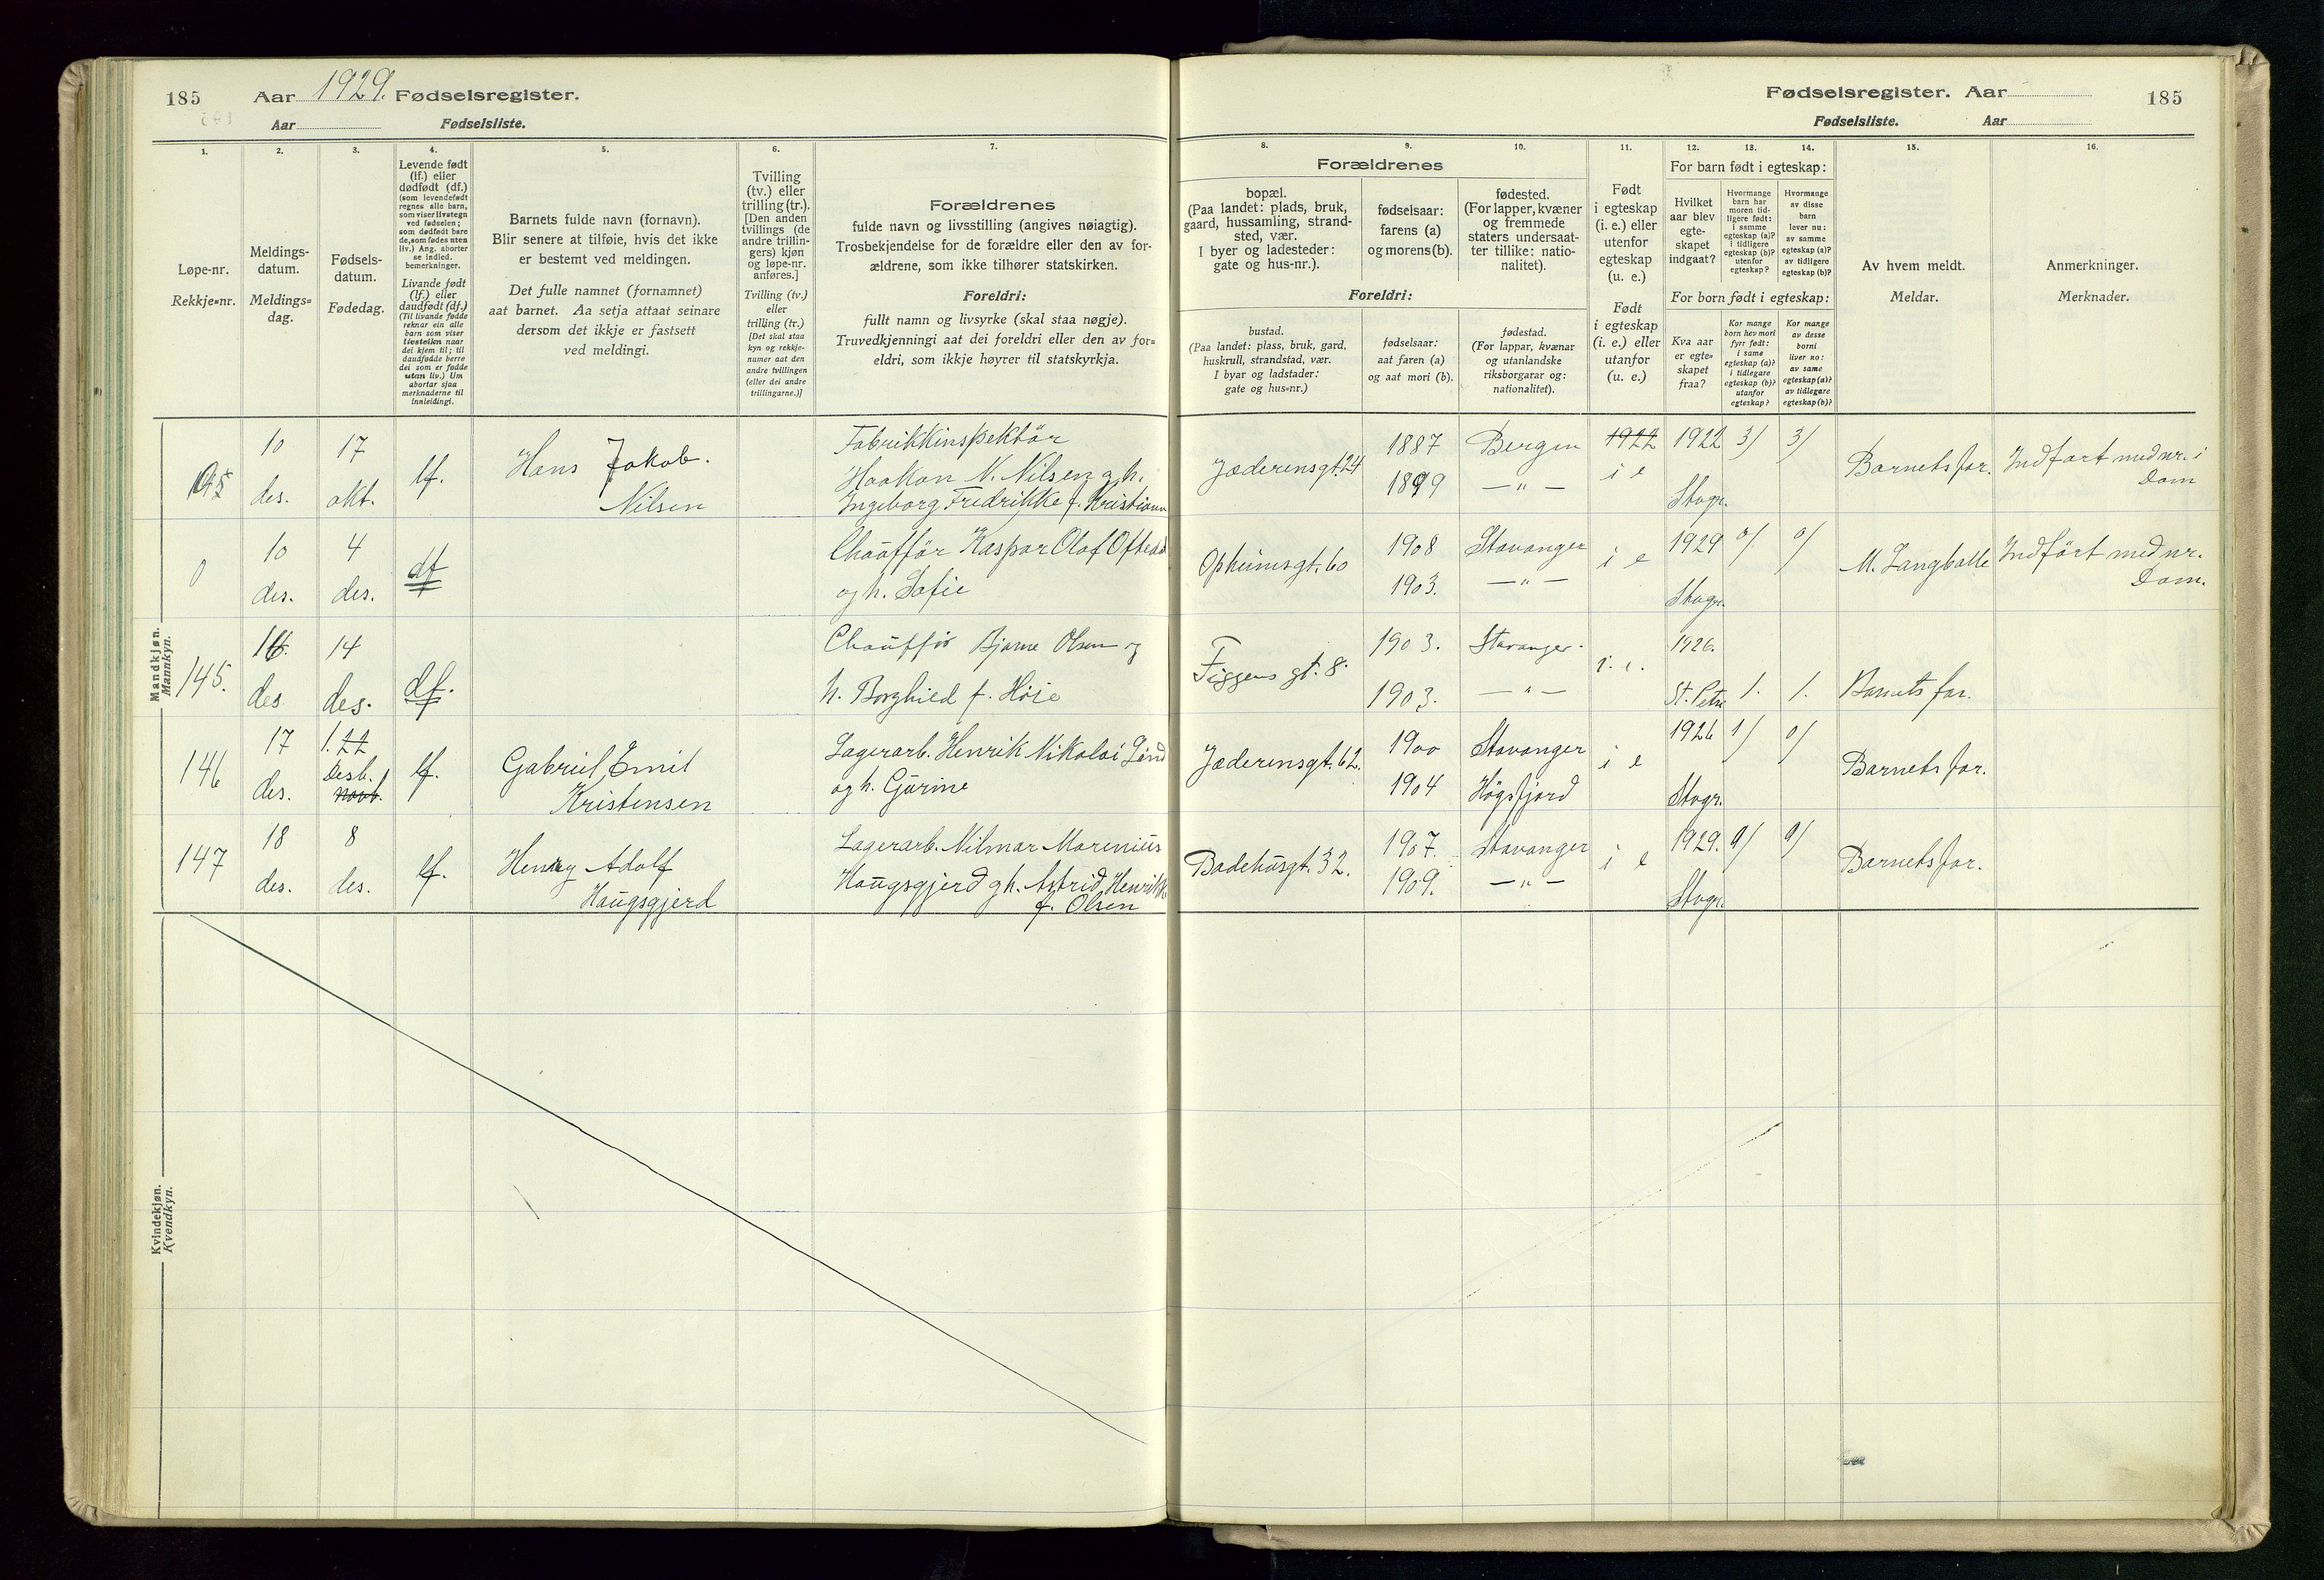 185 Aar 1929. Fødselsregister.
Aar Fødselsliste.
1. 2. 3. 4. 5. 6. 7.
Løpe-nr.
Rekkje=nr.
Meldings-
datum.
Meldings=
dag.
Fødsels-
datum.
Fødedag.
Levende født
(lf.) eller
dødfødt (df.)
(som levendefødt
regnes alle barn,
som viser livstegn
ved fødselen;
som dødfødt bare
de, som fødes uten
liv.) Ang. aborter
se indled.
bemerkninger.
Livande født
(lf.) eller
daudfødt (df.)
(Til livande fødde
reknar ein alle
barn som viser
livsteikn naar
dei kjem til; til
daudfødde berre
dei som er fødde
utan liv.) Um
abortar sjaa
merknaderne til
innleidingi.
Barnets fulde navn (fornavn).
Blir senere at tilføie, hvis det ikke
er bestemt ved meldingen.
Det fulle namnet (fornamnet)
aat barnet. Aa setja attaat seinare
dersom det ikkje er fastsett
ved meldingi.
Tvilling
(tv.) eller
trilling (tr.).
[Den anden
tvillings (de
andre trillin-
gers) kjøn
og løpe-nr.
anføres.]
Tvilling (tv.)
eller
trilling (tr.)
[Det skal staa
kyn og rekkje-
numer aat den
andre tvillingen
(eller dei andre
trillingarne.)]
Forældrenes
fulde navn og livsstilling (angives nøiagtig).
Trosbekjendelse for de forældre eller den av for-
ældrene, som ikke tilhører statskirken.
Foreldri:
fullt namn og livsyrke (skal staa nøgje).
Truvedkjenningi aat dei foreldri eller den av for=
eldri, som ikkje høyrer til statskyrkja.
Mandkjøn.
Mannkyn.
10 des.
17 okt.
lf.
Hans Jakob.
Nilsen
Fabrikkinspektör
Haakon N. Nilsen g h.
Ingeborg Fredrikke f.
0
10 des.
4 des.
df
Chaufför Kaspar Olaf
og h. Sofie
145.
des
14 des.
df.
Chauffør Bjarne Olsen og
h. Borghild f. Høie
146
17 des.
1. 22
Desb.
novb.
lf.
Gabriel Emil
Kristensen
Lagerarb. Henrik Nikolai
og h. Gurine
147
18 des.
8 des.
lf.
Henry Adolf
Haugsgjerd
Lagerarb. Nilmar Marenius
Haugsgjerd g h. Astrid
f. Olsen
Kvindekjøn.
Kvendkyn.
Fødselsregister. Aar 185
Fødselsliste. Aar
8. 9. 10. 11. 12. 13. 14. 15. 16.
Forældrenes
bopæl.
(Paa landet: plads, bruk,
gaard, hussamling, strand-
sted, vær.
I byer og ladesteder:
gate og hus-nr.).
fødselsaar:
farens (a)
og morens (b).
fødested.
(For lapper, kvæner
og fremmede
staters undersaat-
ter tillike: natio-
nalitet).
Foreldri:
bustad.
(Paa landet: plass, bruk, gard,
huskrull, strandstad, vær.
I byar og ladstader:
gate og hus=nr.)
fødselsaar:
aat faren (a)
og aat mori (b).
fødestad.
(For lappar, kvænar
og utanlandske
riksborgarar og:
nationalitet).
Født
i egteskap
(i. e.) eller
utenfor
egteskap
(u. e.)
Født
i egteskap
(i. e.) eller
utanfor
(u. e.)
For barn født i egteskap:
Hvilket
aar blev
egte-
skapet
indgaat?
Hvormange
barn har
moren tid-
ligere født:
i samme
egteskap (a)?
i tidligere
egteskap (b)?
utenfor
egteskap?
Hvormange
av disse
barn
lever nu:
av samme
egteskap (a)?
av tidligere
egteskap (b)?
For born født i egteskap:
Kva aar
er egte=
skapet
fraa?
Kor mange
born hev mori
fyrr født:
i same
egteskap (a)?
i tidlegare
egteskap (b)?
utanfor
egteskap?
Kor mange
av desse
borni
liver no:
av same
egteskap (a)?
av tidlegare
egteskap (b)?
Av hvem meldt.
Meldar.
Anmerkninger.
Merknader.
Jæderensgt. 24
1887
1899
Bergen
— " —
1922
i e
1922 Stvgr.
3/ 3/
Barnets far.
Indført med nr. i
Dom
Opheimsgt. 60
1908
1903.
Stavanger
— " —
i e
1929 Stvgr.
0/ 0/
M. Langballe
Indført med nr.
Dom.
Figgens gt. 8.
1903.
1903.
Stavanger.
— " —
i. e.
1926. St. Petri
1. 1.
Barnets far.
Jæderensgt. 62.
1900
1904
Stavanger
Högsfjord
i e
1926 Stvgr.
1/ 0/
Barnets far.
Badehusgt. 32.
1907.
1909.
Stavanger
— " —
i e
1929. Stvgr.
0/ 0/
Barnets far.